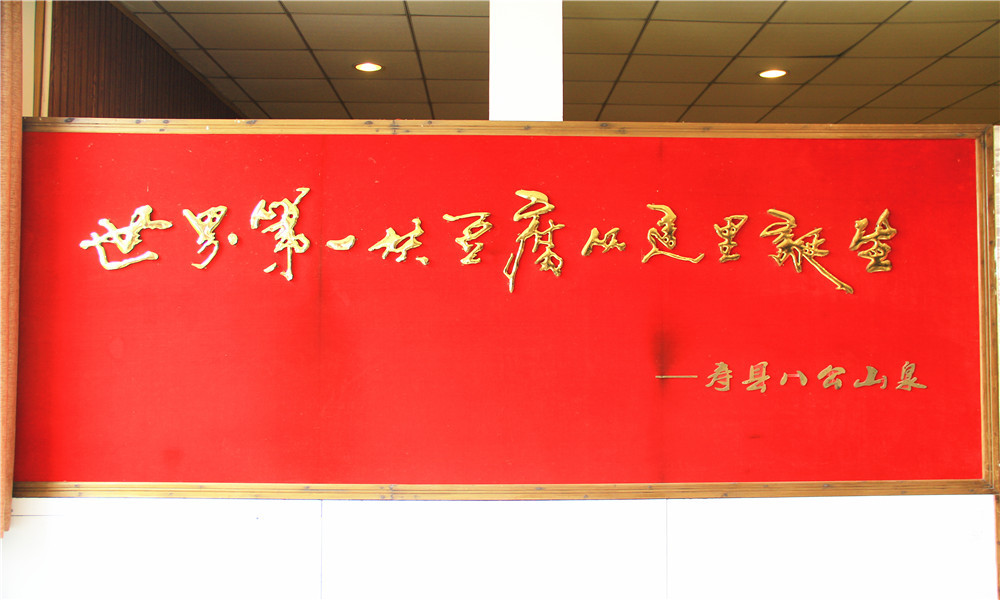 世界第一块豆腐从这里诞生
——寿县八公山泉